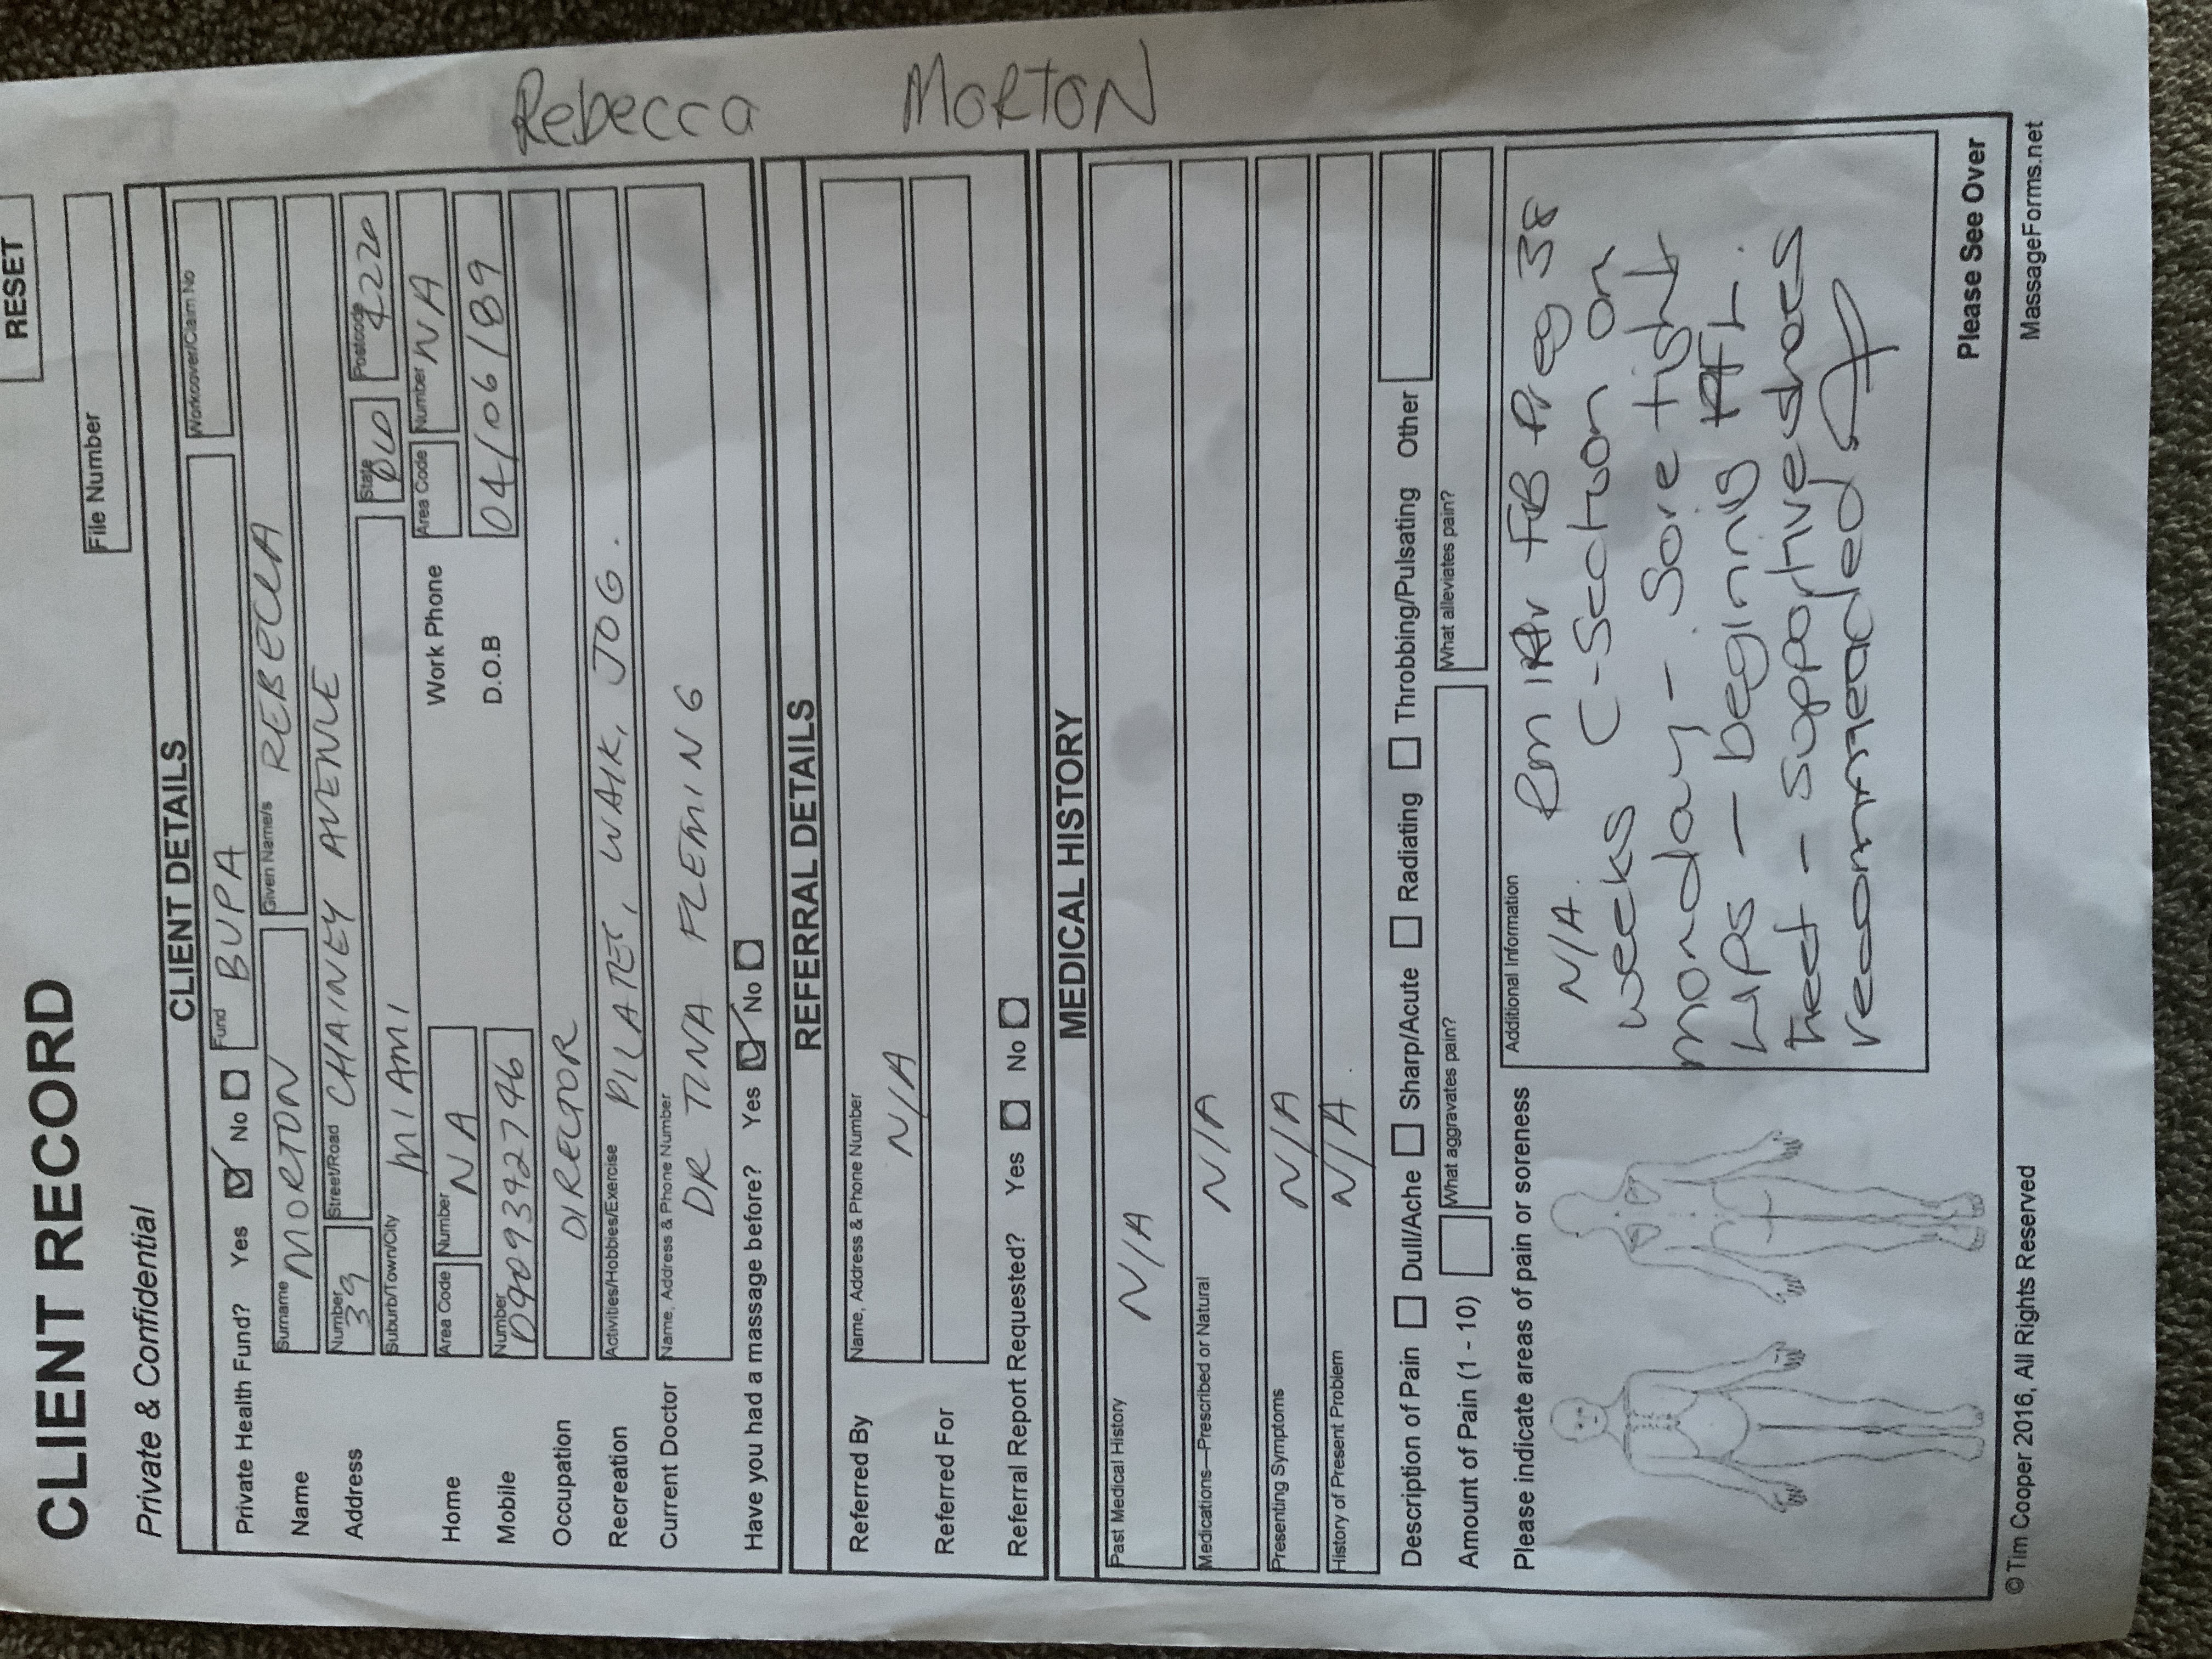 RESET
Rebecca MORTON
CLIENT RECORD
File Number
Private & Confidential
CLIENT DETAILS
Private Health Fund? Yes No Fund BUPA Workcover/Claim No
Name Surname MORTON Given Name/s REBECCA
Address Number 39 Street/Road CHAINEY AVENUE
Suburb/Town/City MIAMI State Postcode 4220
Home Area Code Number NA Work Phone Area Code Number NA
Mobile Number 0409342746 D.O.B 04/06/89
Occupation DIRECTOR
Recreation Activities/Hobbies/Exercise PILATES, WALK, JOG.
Current Doctor Name, Address & Phone Number DR TINA FLEMING
Have you had a massage before? Yes No
REFERRAL DETAILS
Referred By Name, Address & Phone Number N/A
Referred For
Referral Report Requested? Yes No
MEDICAL HISTORY
Past Medical History N/A
Medications—Prescribed or Natural N/A
Presenting Symptoms N/A
History of Present Problem N/A.
Description of Pain Dull/Ache Sharp/Acute Radiating Throbbing/Pulsating Other
Amount of Pain (1 - 10) What aggravates pain? What alleviates pain?
Please indicate areas of pain or soreness
Additional Information
N/A. Rm FB Preg 38
weeks C-Section on
monday - Sore tight
hips - begining
feet - supportive shoes
recommended
Please See Over
© Tim Cooper 2016, All Rights Reserved MassageForms.net